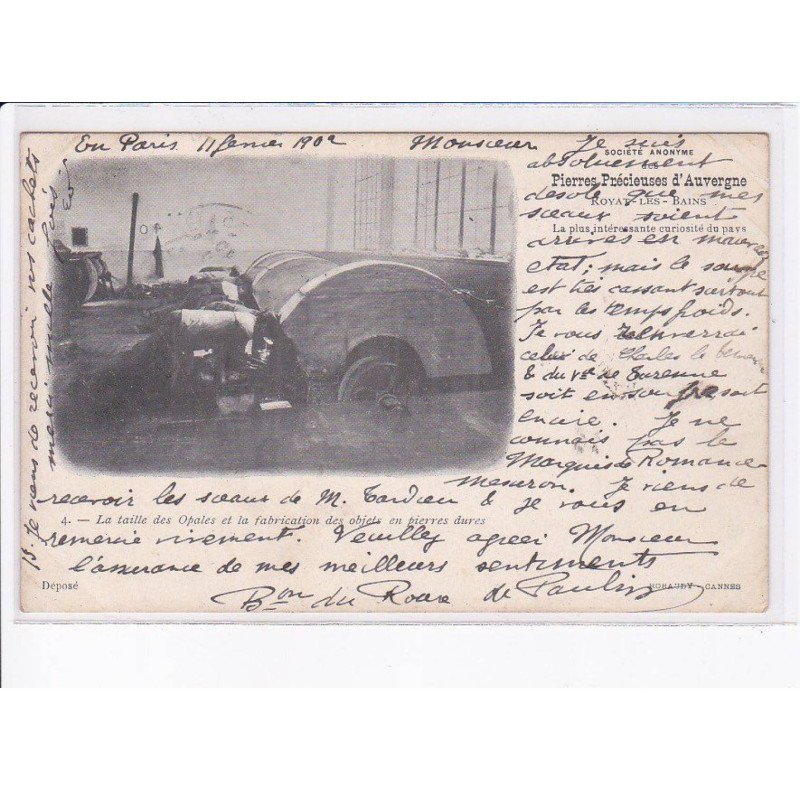 En Paris 11 fevrier 1902 Monsieur Je suis
SOCIÉTÉ ANONYME
des
absoluement
Pierres Précieuses d'Auvergne
désolé que mes
ROYAT-LES-BAINS
sceaux soient
La plus intéressante curiosité du pays
arrivés en mauvais
état; mais le
est très cassant surtout
par les temps froids.
Je vous renverrai
ceux de Charles le
& du Vte de Turenne
soit en soit
encire. Je ne
connais pas le
Marquis de Romance
Mesmon. Je viens de
recevoir les sceaux de M. Tardieu & je vous en
4. — La taille des Opales et la fabrication des objets en pierres dures
remercie vivement. Veuillez agréer Monsieur
l'assurance de mes meilleurs sentiments
Déposé
ROBAUDY CANNES
Bon du Roure de Paulin
13 Je viens de recevoir vos cachets
merci mille fois